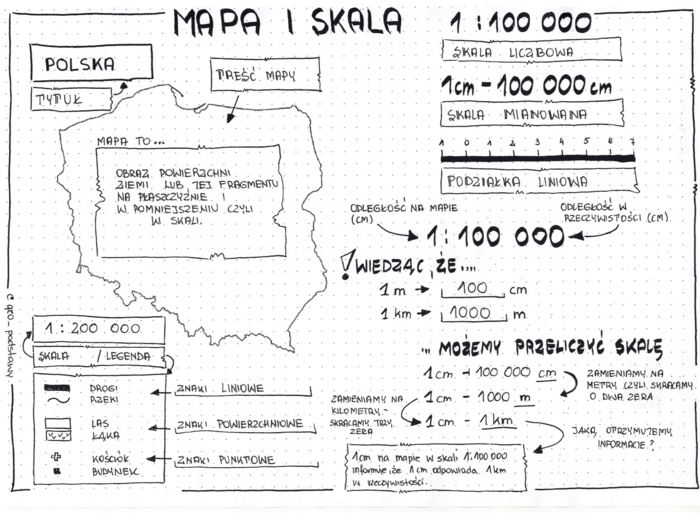 MAPA I SKALA
POLSKA
TYTUŁ
TREŚĆ MAPY
MAPA TO...
OBRAZ POWIERZCHNI
ZIEMI LUB JEJ FRAGMENTU
NA PŁASZCZYŹNIE I
W POMNIEJSZENIU CZYLI
W SKALI.
1 : 200 000
SKALA / LEGENDA
DROGI
RZEKI
ZNAKI LINIOWE
LAS
ŁĄKA
ZNAKI POWIERZCHNIOWE
KOŚCIÓŁ
BUDYNEK
ZNAKI PUNKTOWE
© geo-podstawy
1 : 100 000
SKALA LICZBOWA
1cm - 100 000 cm
SKALA MIANOWANA
1 0 1 2 3 4 5 6 7
PODZIAŁKA LINIOWA
ODLEGŁOŚĆ NA MAPIE
(CM)
ODLEGŁOŚĆ W
RZECZYWISTOŚCI (CM)
1 : 100 000
! WIEDZĄC, ŻE....
1 m → 100 cm
1 km → 1000 m
... MOŻEMY PRZELICZYĆ SKALĘ
1 cm - 100 000 cm
ZAMIENIAMY NA
METRY, CZYLI SKRACAMY
O DWA ZERA
1 cm - 1000 m
ZAMIENIAMY NA
KILOMETRY -
SKRACAMY TRZY
ZERA
1 cm - 1 km
JAKĄ OTRZYMUJEMY
INFORMACJĘ?
1cm na mapie w skali 1:100 000
informuje, że 1 cm odpowiada 1km
w rzeczywistości.